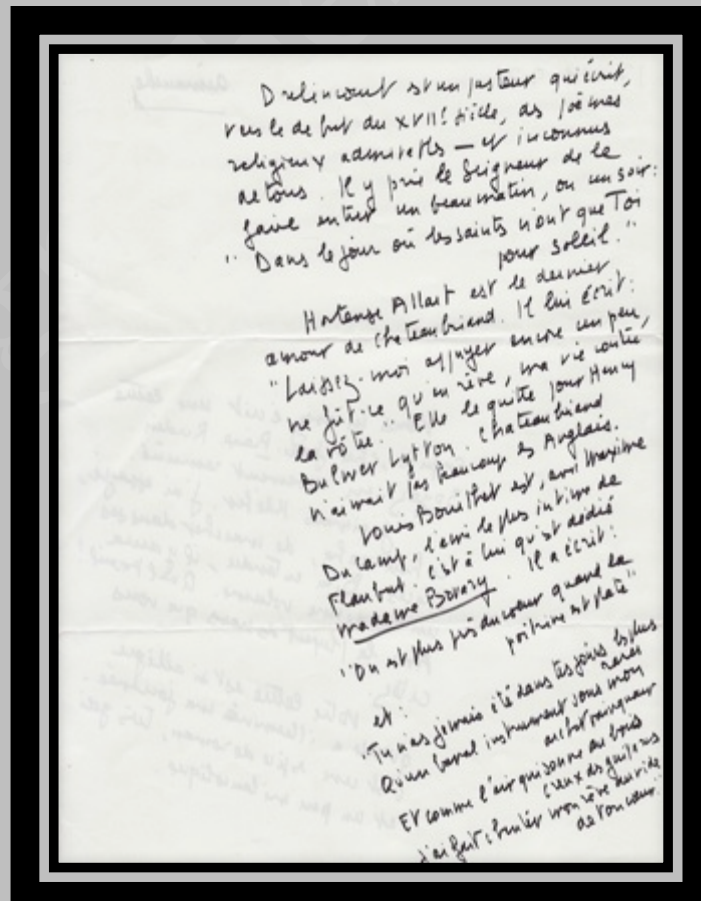 Drelincourt est un pasteur qui écrit,
vers le début du XVIIe siècle, des poèmes
religieux admirables — et inconnus
de tous. Il y prie le Seigneur de le
faire entrer un beau matin, ou un soir:
"Dans le jour où les saints n'ont que Toi
pour soleil."
Hortense Allart est le dernier
amour de Chateaubriand. Il lui écrit:
"Laissez-moi appuyer encore un peu,
ne fût-ce qu'en rêve, ma vie contre
la vôtre." Elle le quitte pour Henry
Bulwer Lytton. Chateaubriand
n'aimait pas beaucoup les Anglais.
Louis Bouilhet est, avec Maxime
Du Camp, l'ami le plus intime de
Flaubert. C'est à lui qu'est dédié
Madame Bovary. Il a écrit:
"On est plus près du coeur quand la
poitrine est plate"
et:
"Tu n'as jamais été dans tes jours les plus
rares
Qu'un banal instrument sous mon
archet vainqueur
Et comme l'air qui sonne au bois
creux des guitares
J'ai fait chanter mon rêve au vide
de ton coeur."